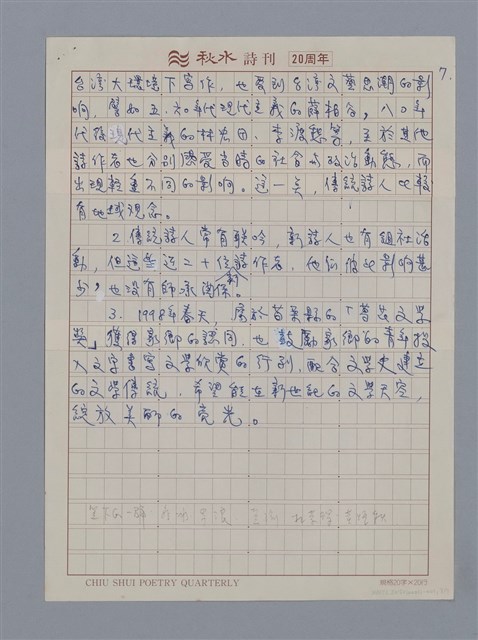 秋水詩刊 20周年
7.
台灣大環境下寫作，也受到台灣文藝思潮的影
響，譬如五、六0年代現代主義的薛柏谷，八0年
代後現代主義的林宏田、李渡愁等，至於其他
詩作者也分別感受當時的社會與政治動態，而
出現輕重不同的影响。這一点，傳統詩人比較
有地域觀念。
2. 傳統詩人常有联吟，新詩人也有組社活
動，但這些近二十位新詩作者，他们彼此影响甚
少，也沒有師承関係。
3. 1998年春天，屬於苗栗縣的「夢花文學
獎」獲得家鄉的認同，也鼓勵家鄉的青年投
入文字書寫文學欣賞的行列，配合文學史建立
的文學傳統，希望能在新世紀的文學天空，
綻放美丽的亮光。
CHIU SHUI POETRY QUARTERLY
稿紙20字×25行